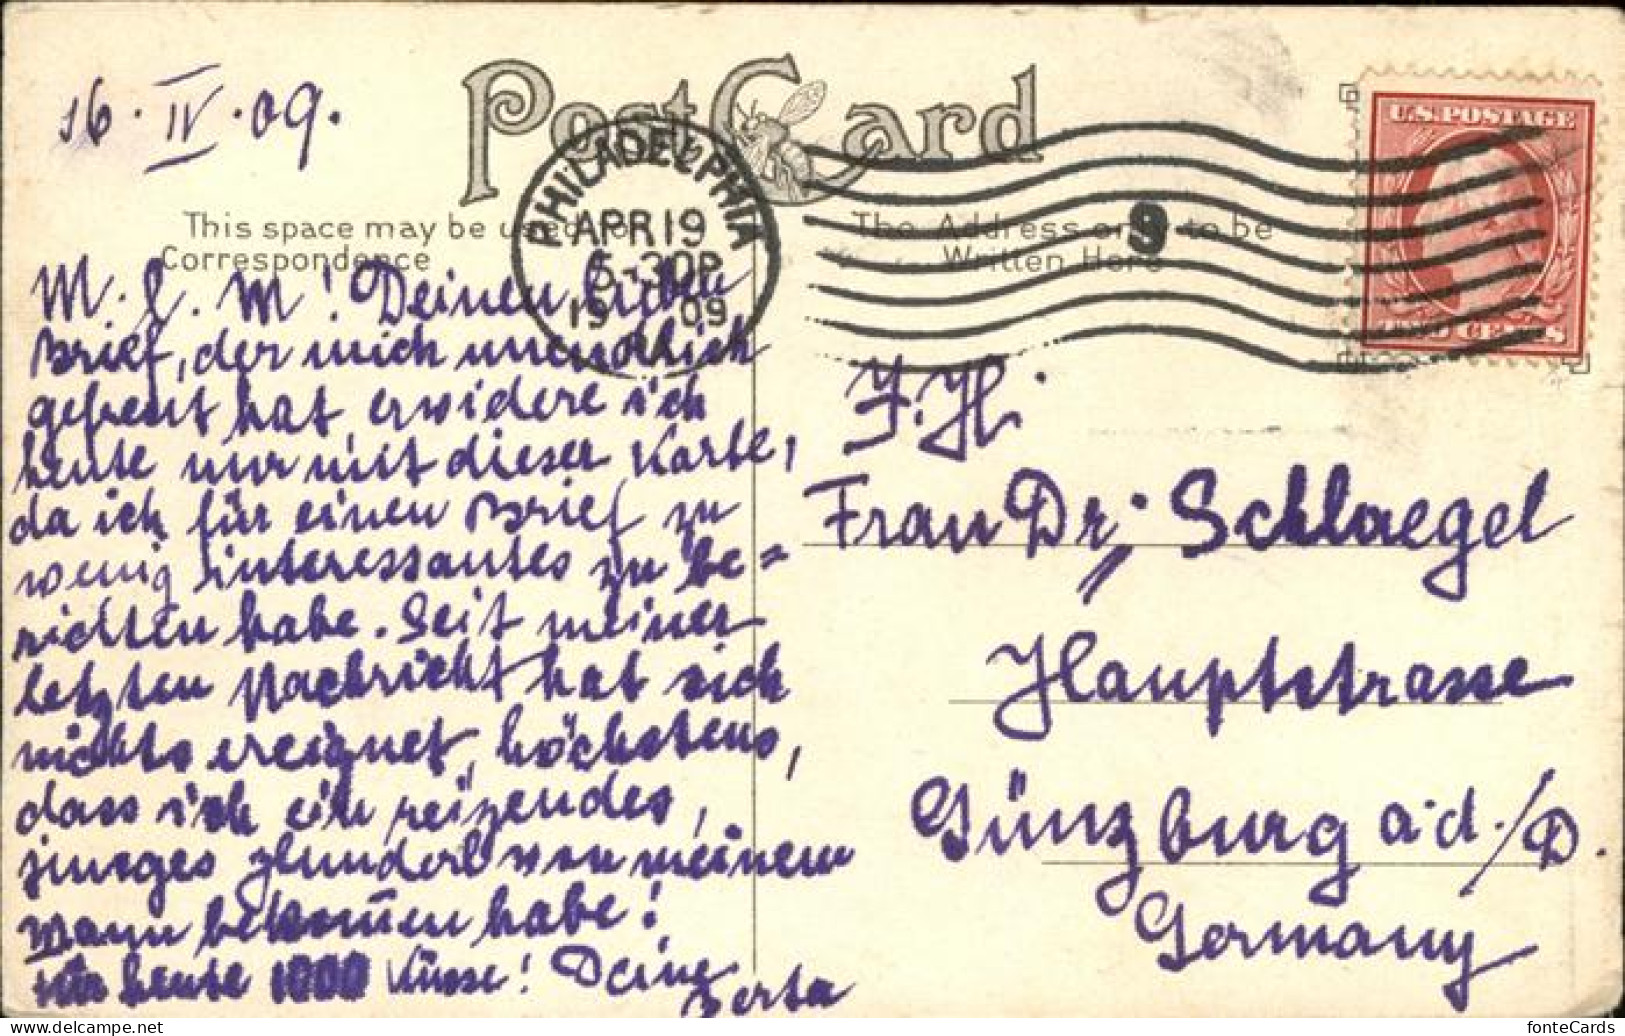 16. IV. 09.
Post Card
This space may be used for
Correspondence
The Address only to be
Written Here
PHILADELPHIA
APR 19
5-30P
1909
PA.
9
U.S. POSTAGE
TWO CENTS
M. l. M! Deinen lieben
Brief, der mich unendlich
gefreut hat erwidere ich
heute nur mit dieser Karte,
da ich für einen Brief zu
wenig interessantes zu be=
richten habe. Seit meiner
letzten Nachricht hat sich
nichts ereignet, höchstens,
dass ich ein reizendes,
junges Hunderl von meinem
Mann bekommen habe!
Für heute 1000 Küsse! Deine
Berta
I. H.
Frau Dr. Schlaegel
Hauptstrasse
Günzburg a. d. /D.
Germany
fonteCards